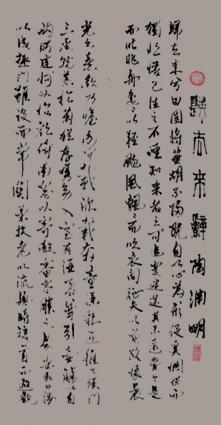 歸去來辭 陶淵明
歸去来兮田園將蕪胡不歸既自以心為形役奚惆悵而
獨悲悟已往之不諫知来者之可追實迷途其未遠覺今是
而昨非舟遥遥以輕颺風飄飄而吹衣问征夫以前路恨晨
光之熹微乃瞻衡宇載欣載奔僮僕歡迎稚子候門
三徑就荒松菊猶存携幼入室有酒盈樽引壺觴以自
酌眄庭柯以怡顏倚南窗以寄傲審容膝之易安園日涉
以成趣門雖設而常關策扶老以流憩時矯首而遐觀